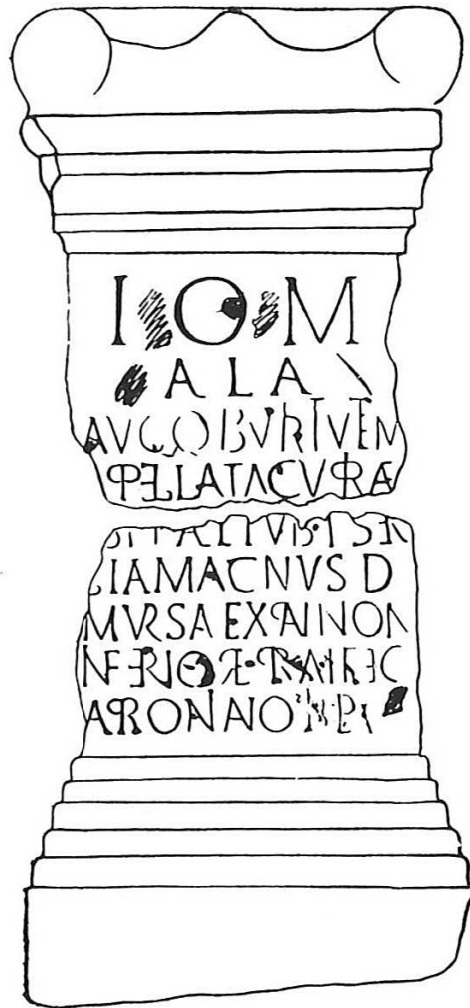 I O M
ALA
AVGOBVRTVTEM
PELLATACVPRAE
IAMAGNVS D
MVRSA EX PANNON
NFERIORE PRAEFEC
APRONANO